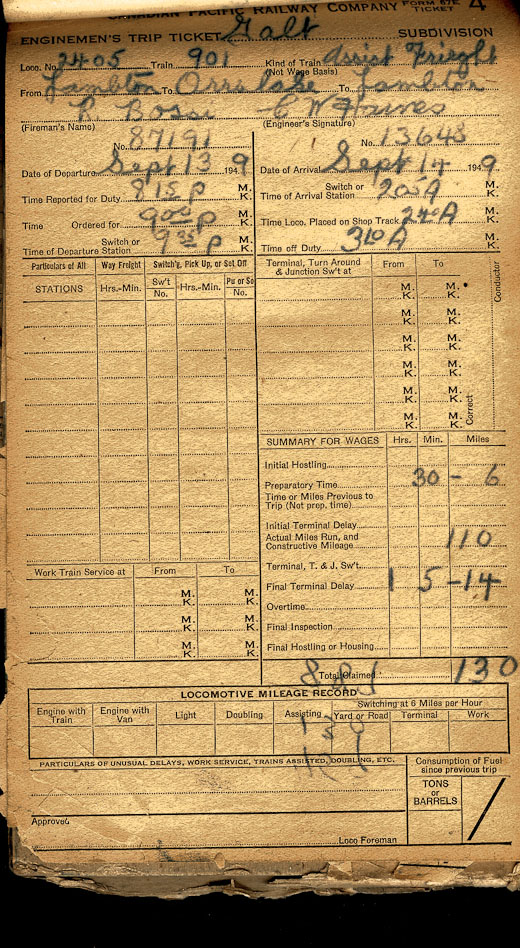 CANADIAN PACIFIC RAILWAY COMPANY FORM 87E
TICKET 4
ENGINEMEN'S TRIP TICKET Galt SUBDIVISION
Loco. No. 2405 Train 901 Kind of Train (Not Wage Basis)
From Lambton To To Lambton
(Fireman's Name) (Engineer's Signature)
No. 87191 No. 13648
Date of Departure Sept 13 1949 Date of Arrival Sept 14 1949
Time Reported for Duty 815 P M. K. Switch or Time of Arrival Station 205 A M. K.
Time Ordered for 900 P M. K. Time Loco. Placed on Shop Track 240 A M. K.
Switch or Time of Departure Station P M. K. Time off Duty 310 A M. K.
Particulars of All Way Freight Switch'g, Pick Up, or Set Off
STATIONS Hrs.-Min. Sw't No. Hrs.-Min. Pu or So No.
Terminal, Turn Around & Junction Sw't at From To
M. K. M. K.
M. K. M. K.
M. K. M. K.
M. K. M. K.
M. K. M. K.
M. K. M. K.
Correct Conductor
SUMMARY FOR WAGES Hrs. Min. Miles
Initial Hostling
Preparatory Time 30 - 6
Time or Miles Previous to Trip (Not prep. time)
Initial Terminal Delay
Actual Miles Run, and Constructive Mileage 110
Terminal, T. & J. Sw't.
Final Terminal Delay 1 5 - 14
Overtime
Final Inspection
Final Hostling or Housing
Total Claimed 130
Work Train Service at From To
M. K. M. K.
M. K. M. K.
M. K. M. K.
LOCOMOTIVE MILEAGE RECORD
Engine with Train Engine with Van Light Doubling Assisting Switching at 6 Miles per Hour
Yard or Road Terminal Work
PARTICULARS OF UNUSUAL DELAYS, WORK SERVICE, TRAINS ASSISTED, DOUBLING, ETC.
Consumption of Fuel since previous trip
TONS or BARRELS
Approved
Loco Foreman